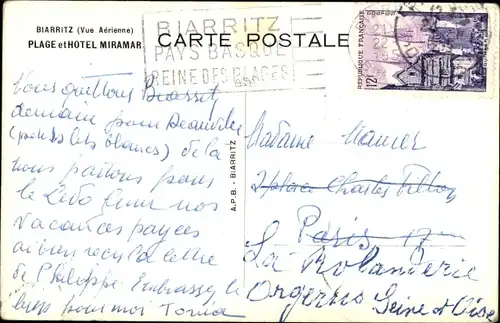 BIARRITZ (Vue Aérienne)
PLAGE et HOTEL MIRAMAR
CARTE POSTALE
BIARRITZ
PAYS BASQUE
REINE DES PLAGES
REPUBLIQUE FRANÇAISE
12F
A.P.B. - BIARRITZ
Nous quittons Biarritz
demain pour Deauville
(pour les blancs) de la
nous partons pour
le Lido finir nos
vacances payees
ai bien reçu ta lettre
de Philippe Embrassez le
bien pour moi Tonia
Madame
2 place Charles Fillion
Paris 17
La Rolanderie
Orgerus Seine et Oise